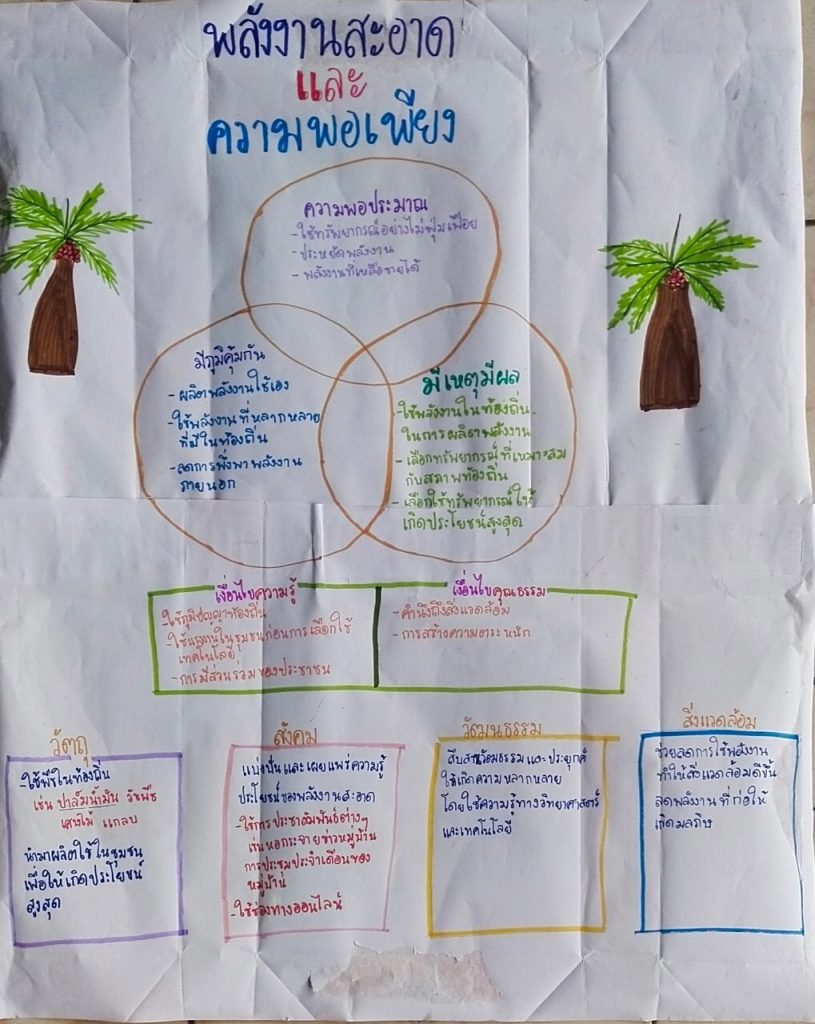 พลังงานสะอาด
และ
ความพอเพียง
ความพอประมาณ
-ใช้ทรัพยากรอย่างไม่ฟุ่มเฟือย
-ประหยัดพลังงาน
- พลังงานที่เหลือขายได้
มีภูมิคุ้มกัน
- ผลิตพลังงานใช้เอง
-ใช้พลังงานที่หลากหลาย
ที่มีในท้องถิ่น
-ลดการพึ่งพาพลังงาน
ภายนอก
มีเหตุมีผล
-ใช้พลังงานในท้องถิ่น
ในการผลิตพลังงาน
- เลือกทรัพยากรที่เหมาะสม
กับสภาพท้องถิ่น
- เลือกใช้ทรัพยากรให้
เกิดประโยชน์สูงสุด
เงื่อนไขความรู้
-ใช้ภูมิปัญญาท้องถิ่น
-ใช้แรงงานในชุมชนก่อนการเลือกใช้
เทคโนโลยี
- การมีส่วนร่วมของประชาชน
เงื่อนไขคุณธรรม
- คำนึงถึงสิ่งแวดล้อม
- การสร้างความตระหนัก
วัตถุ
-ใช้พืชในท้องถิ่น
เช่น ปาล์มน้ำมัน วัชพืช
เศษไม้ แกลบ
นำมาผลิตใช้ในชุมชน
เพื่อให้เกิดประโยชน์
สูงสุด
สังคม
แบ่งปันและเผยแพร่ความรู้
ประโยชน์ของพลังงานสะอาด
-ใช้การประชาสัมพันธ์ต่างๆ
เช่นหอกระจายข่าวหมู่บ้าน
การประชุมประจำเดือนของ
หมู่บ้าน
-ใช้ช่องทางออนไลน์
วัฒนธรรม
สืบสานวัฒธรรมและประยุกต์
ใช้เกิดความหลากหลาย
โดยใช้ความรู้ทางวิทยาศาสตร์
และเทคโนโลยี
สิ่งแวดล้อม
ช่วยลดการใช้พลังงาน
ทำให้สิ่งแวดล้อมดีขึ้น
ลดพลังงานที่ก่อให้
เกิดมลพิษ